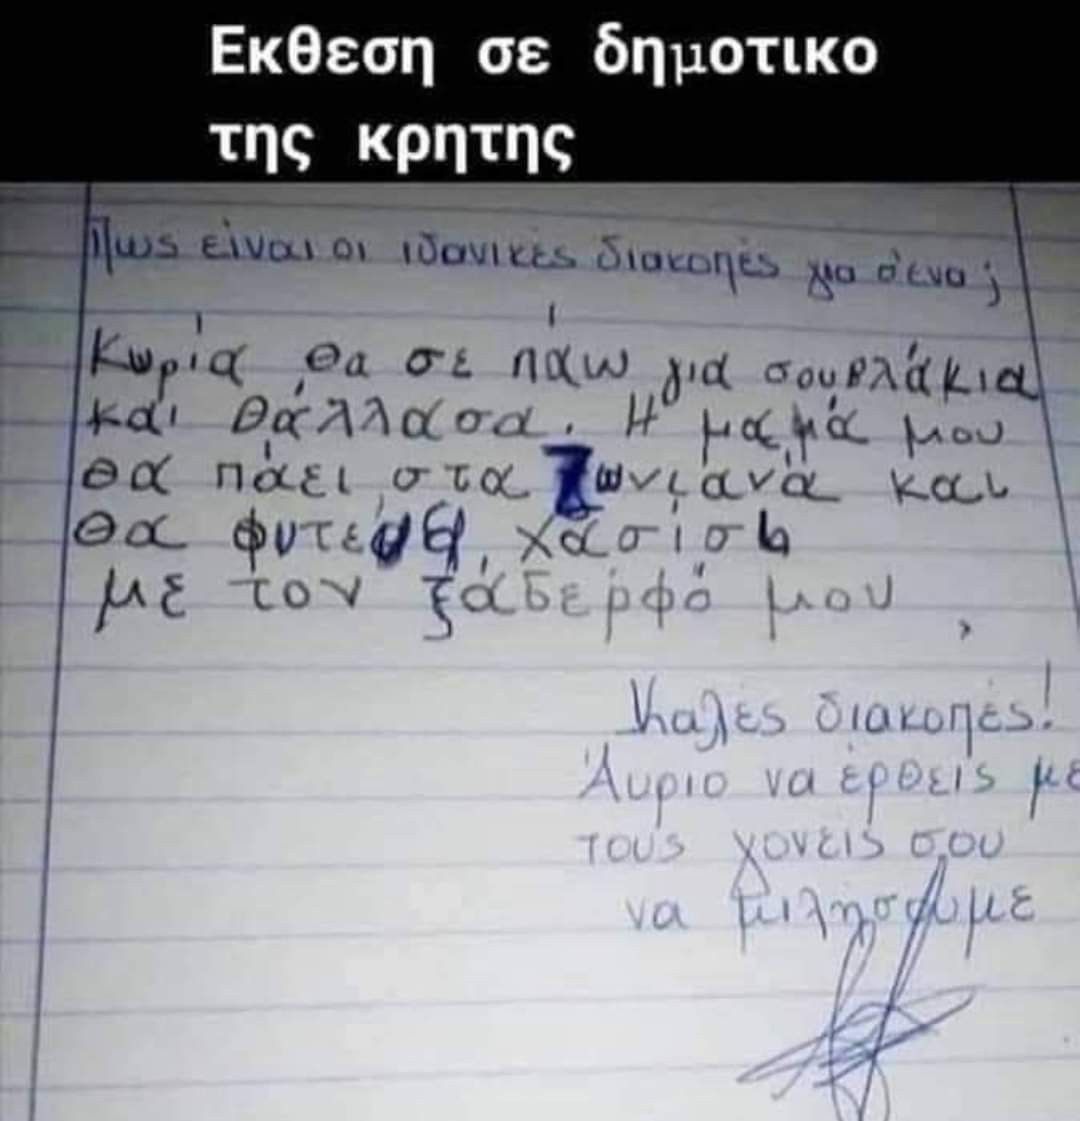 Εκθεση σε δημοτικο
της κρητης
Πως είναι οι ιδανικές διακοπές για σένα;
Κωρία θα σε πάω για σουβλάκια
και θάλλασα. Η μαμά μου
θα πάει στα Ζωνιανά και
θα φυτέψει χασίσι
με τον ξάδερφό μου
Καλές διακοπές!
Αύριο να έρθεις με
τους γονείς σου
να μιλήσουμε